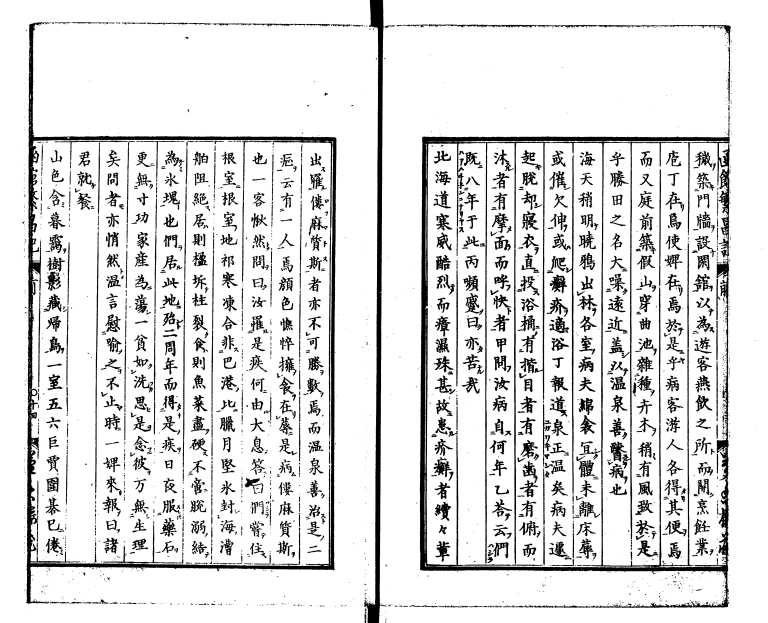 幟築門牆設閑館以為遊客燕飲之所而開烹飪業
庖丁在焉使婢在焉於是乎病客游人各得其便焉
而又庭前築假山穿曲池雜種卉木稍有風致於是
乎勝田之名大噪遠近蓋以温泉善醫病也
海天稍明曉鴉出林各室病夫綿食宜體未離床蓐
或催欠伸或爬癬疥適浴丁報道泉正温矣病夫遽
起脫却寢衣直投浴桶有揩目者有磨齒者有俯而
沐者有摩面而呼快者甲問汝病自何年乙答云們
既八年于此丙嚬蹙曰亦苦哉
北海道寒威酷烈而瘴濕殊甚故患疥癬者續々輩
出羅僂麻質斯者亦不可勝數焉而温泉善治是二
病云有一人焉顏色憔悴擁食在蓐是病僂麻質斯
也一客愀然問曰汝罹是疾何由大息答曰們嘗住
根室根室地祁寒凍合非巴港比臘月堅氷封海漕
舶阻絕居則楹坼柱裂食則魚菜盡硬不啻脫溺結
為氷塊也們居此地殆二周年而得是疾日夜服藥石
更無寸功家産為蕩一貧如洗思是念彼万無生理
矣問者亦悄然温言慰喻之不止時一婢來報曰諸
君就餐
山色含暮靄樹影藏歸鳥一室五六巨賈圍碁已倦